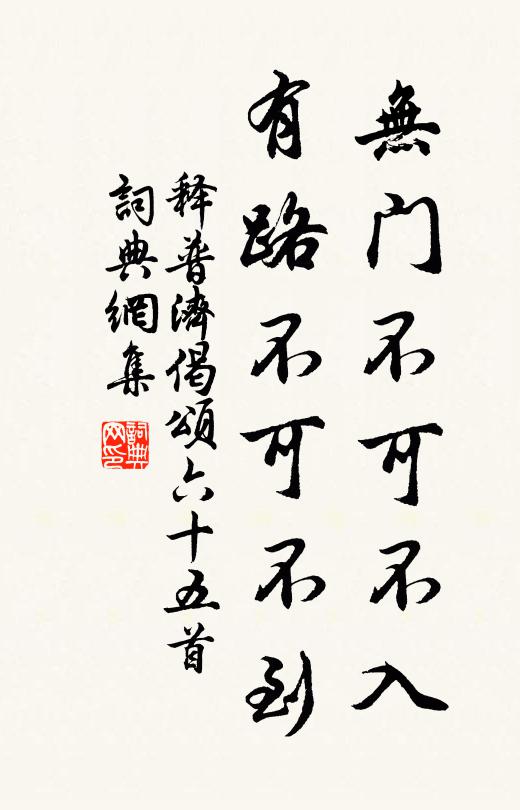 無门不可不入
有路不可不到
释普濟偈頌六十五首
詞典網集
詞典网印